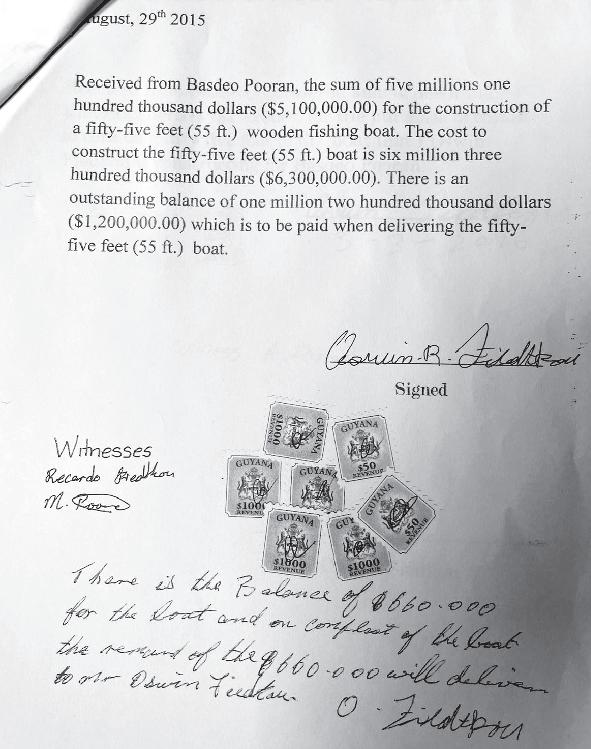 ugust, 29th 2015
Received from Basdeo Pooran, the sum of five millions one
hundred thousand dollars ($5,100,000.00) for the construction of
a fifty-five feet (55 ft.) wooden fishing boat. The cost to
construct the fifty-five feet (55 ft.) boat is six million three
hundred thousand dollars ($6,300,000.00). There is an
outstanding balance of one million two hundred thousand dollars
($1,200,000.00) which is to be paid when delivering the fifty-
five feet (55 ft.) boat.
Signed
Witnesses
Recardo
M.
GUYANA
$1000
REVENUE
GUYANA
$50
REVENUE
GUYANA
$100
REVENU
GUYANA
GUYANA
$50
REVENUE
GUYANA
$1000
REVENUE
GUY
$1000
REVENUE
There is the Balance of $660.000
for the boat and on compleat of the boat
the of the $660.000 will deliver
to mr Oswin
O.